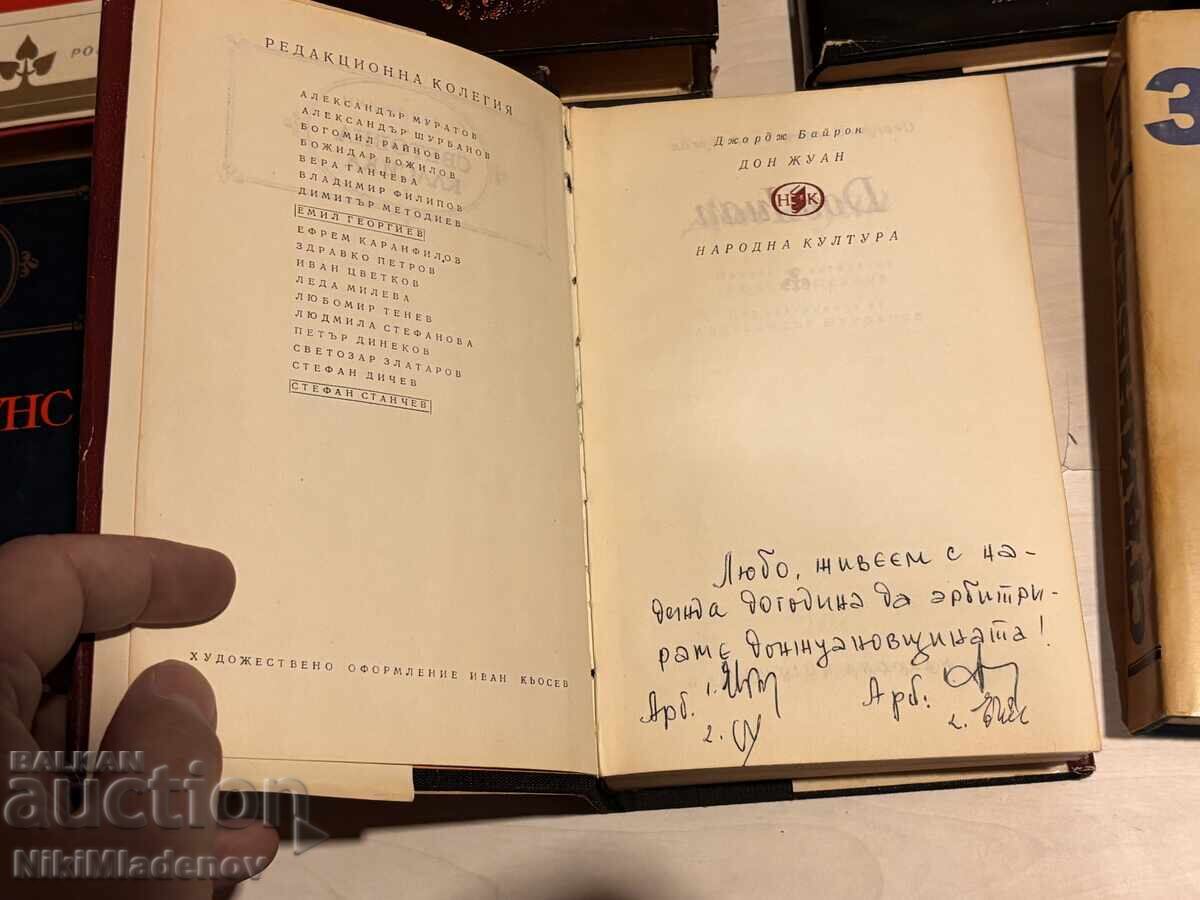 РЕДАКЦИОННА КОЛЕГИЯ
АЛЕКСАНДЪР МУРАТОВ
АЛЕКСАНДЪР ШУРБАНОВ
БОГОМИЛ РАЙНОВ
БОЖИДАР БОЖИЛОВ
ВЕРА ГАНЧЕВА
ВЛАДИМИР ФИЛИПОВ
ДИМИТЪР МЕТОДИЕВ
ЕМИЛ ГЕОРГИЕВ
ЕФРЕМ КАРАНФИЛОВ
ЗДРАВКО ПЕТРОВ
ИВАН ЦВЕТКОВ
ЛЕДА МИЛЕВА
ЛЮБОМИР ТЕНЕВ
ЛЮДМИЛА СТЕФАНОВА
ПЕТЪР ДИНЕКОВ
СВЕТОЗАР ЗЛАТАРОВ
СТЕФАН ДИЧЕВ
СТЕФАН СТАНЧЕВ
ХУДОЖЕСТВЕНО ОФОРМЛЕНИЕ ИВАН КЬОСЕВ
Джордж Байрон
ДОН ЖУАН
НК
НАРОДНА КУЛТУРА
Любо, живеем с на-
дежда догодина да арбитри-
раме донжуановщината!
Арб. 1.
2.
Арб:
2.
РО
УНС
3
BALKAN
auction
NikiMladenov